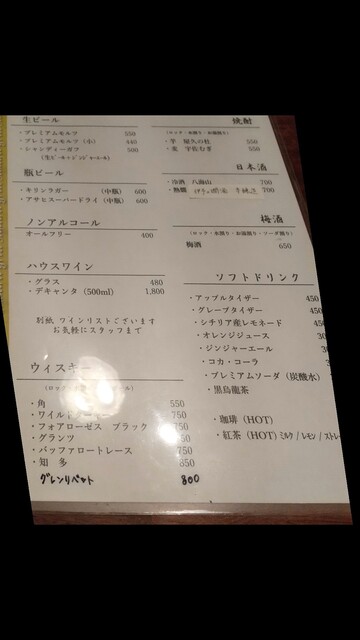 生ビール
・プレミアムモルツ 550
・プレミアムモルツ（小） 440
・シャンディーガフ 500
(生ビール+ジンジャーエール)
瓶ビール
・キリンラガー （中瓶） 600
・アサヒスーパードライ（中瓶） 600
ノンアルコール
オールフリー 400
ハウスワイン
・グラス 480
・デキャンタ（500ml） 1,800
別紙 ワインリストございます
お気軽にスタッフまで
ウィスキー
・角 550
・ワイルド 750
・フォアローゼス ブラック 750
・グランツ
・バッファロートレース 750
・知 多 850
グレンリベット 800
焼酎
(ロック・水割り・お湯割り)
・芋 屋久の杜 550
・麦 宇佐むぎ 550
日本酒
・冷酒 八海山 700
・熱燗 700
梅酒
(ロック・水割り・お湯割り・ソーダ割り)
梅酒 650
ソフトドリンク
・アップルタイザー 450
・グレープタイザー 450
・シチリア産レモネード 450
・オレンジジュース
・ジンジャーエール
・コカ・コーラ
・プレミアムソーダ（炭酸水）
・黒烏龍茶
・珈琲（HOT）
・紅茶（HOT）ミルク/レモン/ストレ